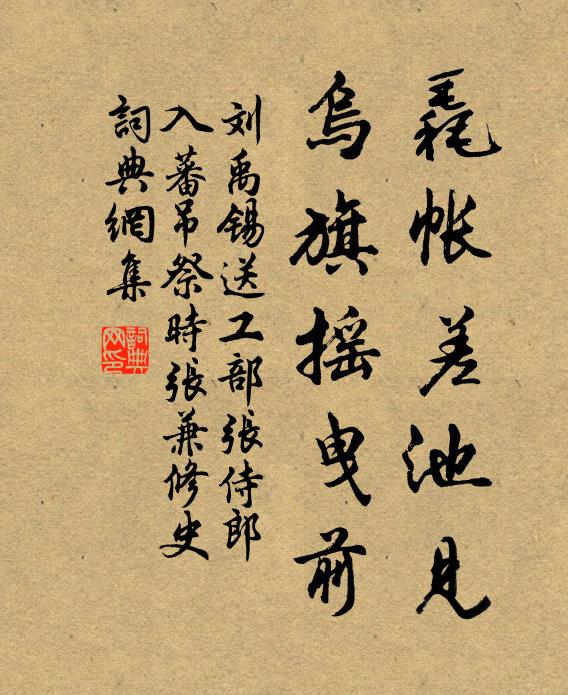 毳帐差池见
乌旗摇曳前
刘禹锡送工部張侍郎
入蕃吊祭時張兼修史
詞典網集
詞典网印